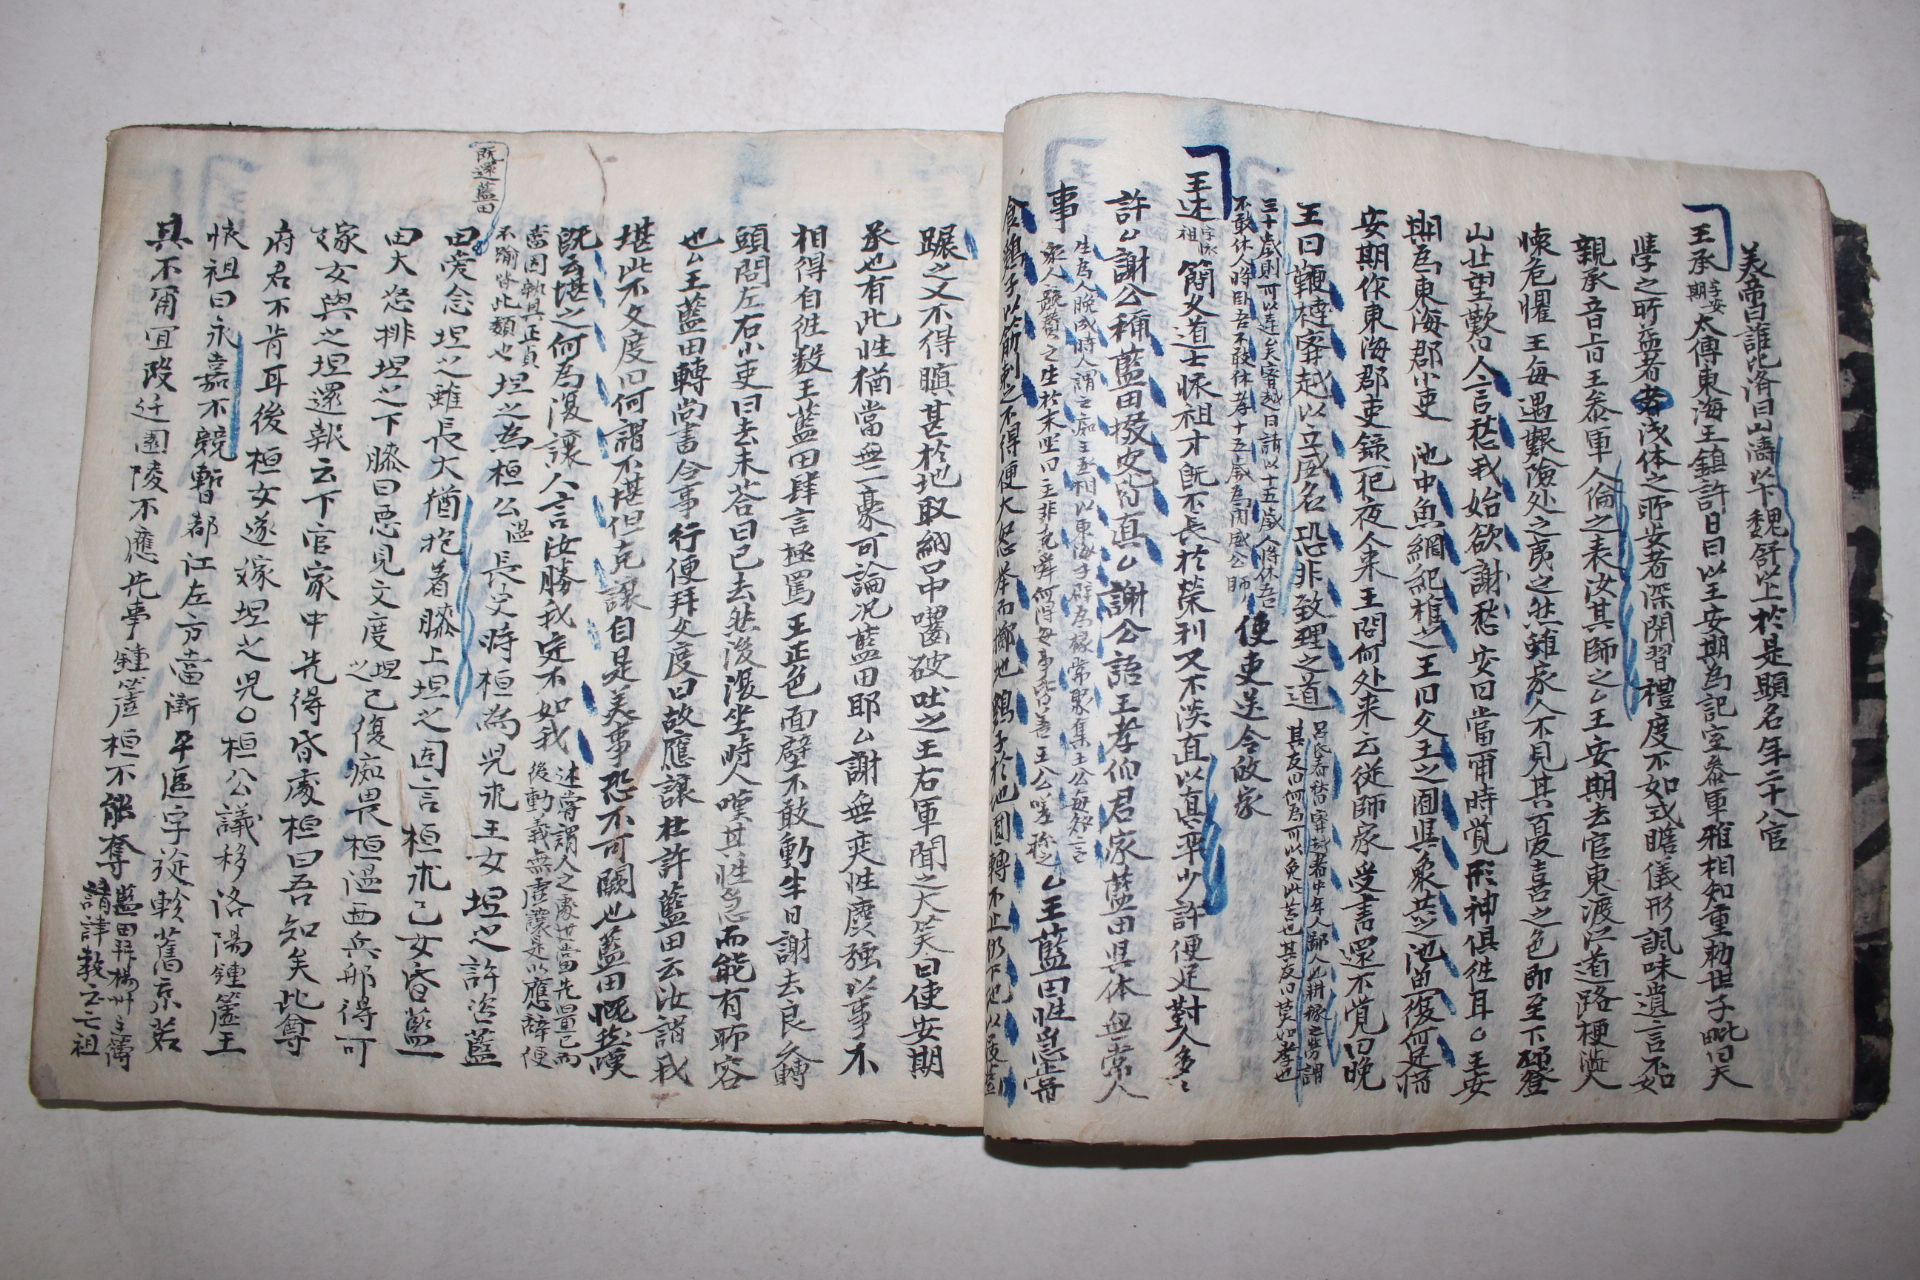 美帝曰誰比濟曰山濤以下魏舒以上於是顯名年二十八官
王承 安期 太傅東海王鎮許日曰以王安期為記室參軍雅相知重勅世子毗曰夫
學之所益者淺体之所安者深閑習禮度不如式瞻儀形諷味遺言不如
親承音旨王參軍人倫之表汝其師之 王安期去官東渡江道路梗澁人
懐危懼王每遇艱險処之夷然雖家人不見其憂喜之色即至下邳登
山北望歎曰人言愁我始欲謝愁安曰當甭時覺形神俱徃耳 王安
期為東海郡小吏池中魚綱紀推之王曰文王之囿與衆共之池魚復何足惜
安期作東海郡吏錄一犯夜人来王問何処来云従師家受書還不覺日晚
王曰鞭撻寗越以立威名恐非致理之道
使吏送令故家
王述 懐祖 簡文道王懐祖才既不長於榮利又不淡直以真率少許便足對人多多
許 謝公稱藍田掇皮皆真 謝公語王孝伯君家藍田舉体無常人
事 王藍田性急嘗
食鷄子以筯刺之不得便大怒举而擲地鷄子於地圓轉不止仍下地以屐齒
蹍之又不得瞋甚於地取納口中嚙破吐之王右軍聞之大笑曰使安期
承也有此性猶當無一豪可論况藍田耶 謝無奕性麤强以事不
相得自徃数王藍田肆言極罵王正色面壁不敢動半日謝去良久轉
頭問左右小吏曰去未荅曰已去然後復坐時人嘆其性急而能有所容
也 王藍田轉尚書令事行便拜文度曰故應讓杜許藍田云汝謂我
堪此不文度曰何謂不堪但克讓自是美事恐不可闕也藍田慨然嘆
既云堪之何為復讓人言汝勝我定不如我 述嘗謂人之處世當先量己而
後動義無虛讓是以應辭便
當固執其正貞
不踰皆此類也 坦之為桓公 温 長史時桓為児求王女坦之許咨藍
所逑藍田
田愛念坦之雖長大猶抱着膝上坦之因言桓求己女昏藍
田大怒排坦之下膝曰惡見文度 坦之 已復痴畏桓温面兵那得可
嫁女與之坦還報云下官家中先得昏處桓曰吾知矣此尊
府君不肯耳後桓女遂嫁坦之児 桓公議移洛陽鍾簴王
懐祖曰永嘉不競暫都江左方當漸平區宇旋軫舊京若
其不甭宜改迁園陵不應先事鍾簴桓不能奪 藍田拜揚州主簿
請諱教云亡祖